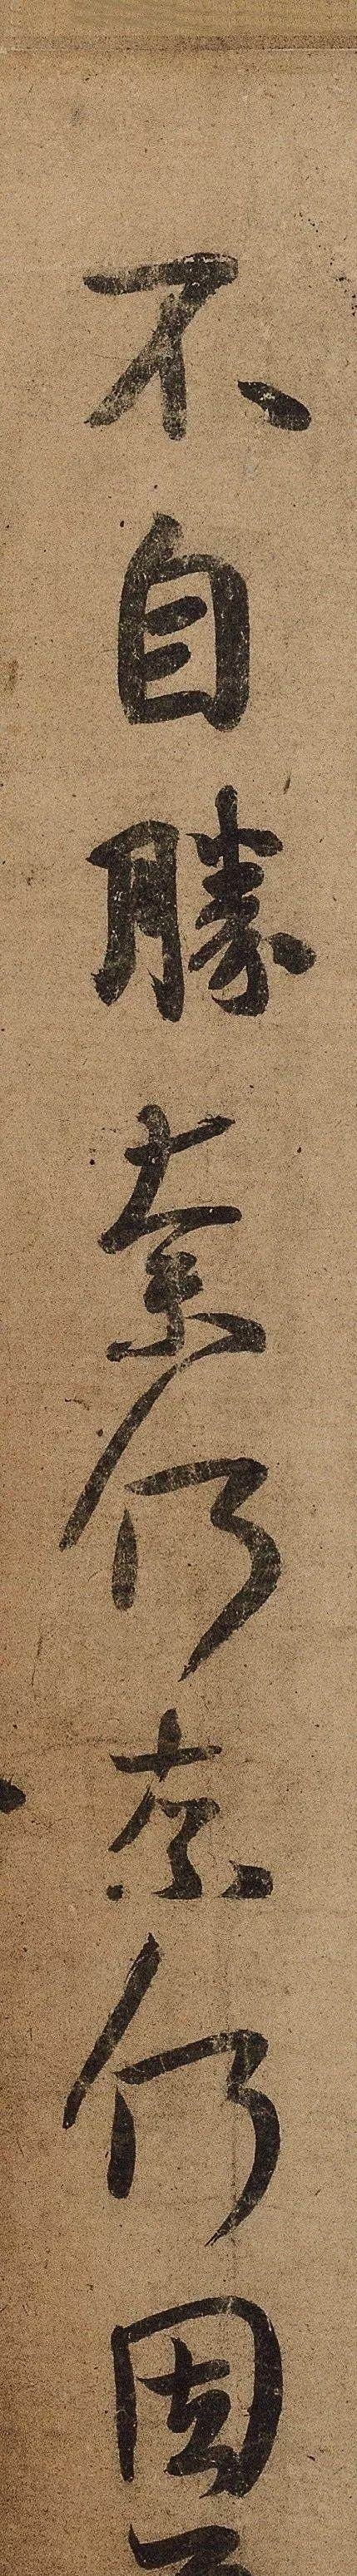 不自勝奈何奈何固